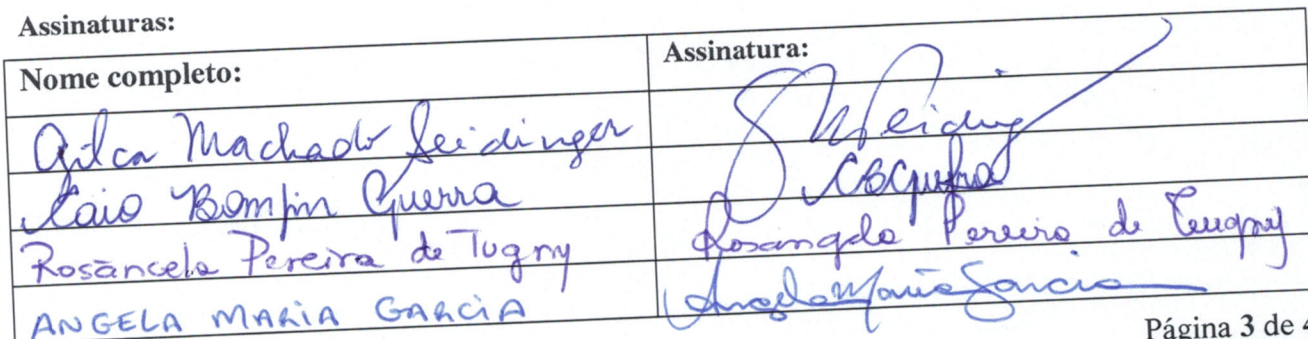 Assinaturas:
Nome completo: Assinatura:
Gilca Machado Seidinger
Caio Bomfim Guerra
Rosângela Pereira de Tugny Rosangela Pereira de Tugny
ANGELA MARIA GARCIA Angela Maria Garcia
Página 3 de 4